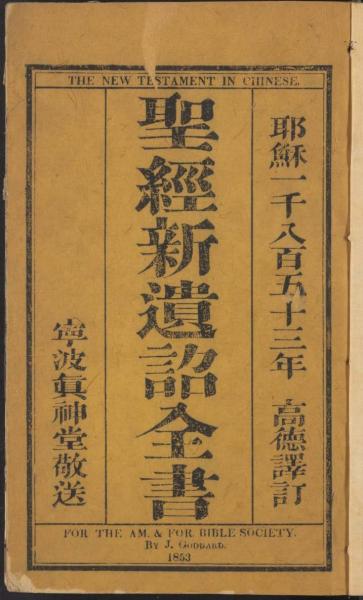 THE NEW TESTAMENT IN CHINESE.
耶穌一千八百五十三年 高德譯訂
聖經新遺詔全書
寧波眞神堂敬送
FOR THE AM. & FOR. BIBLE SOCIETY.
By J. Goddard.
1853